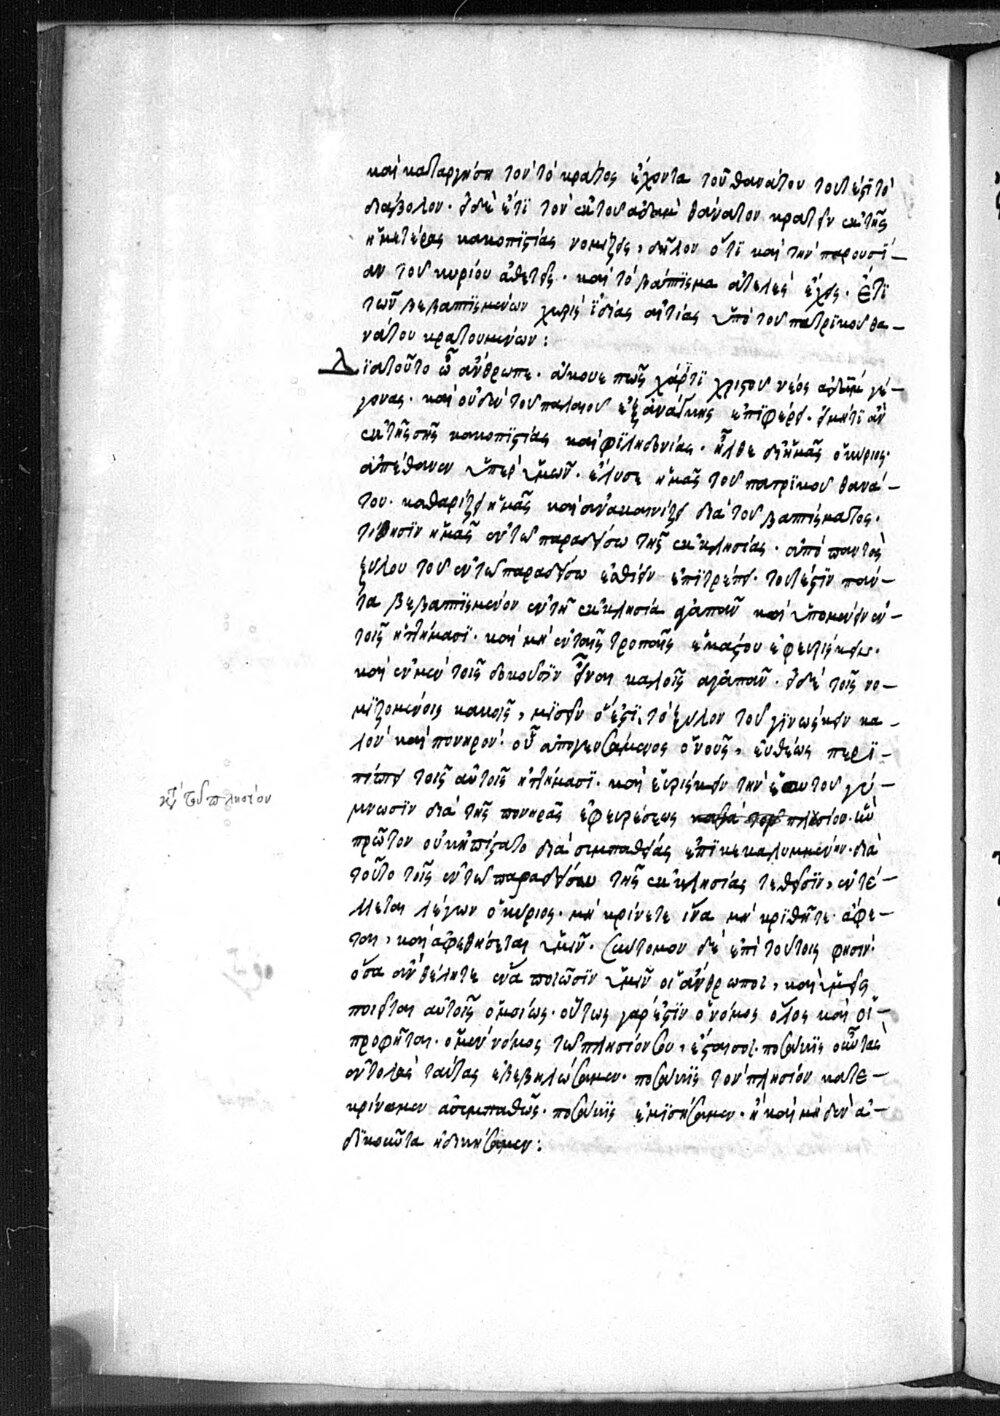 καὶ καταργήση τὸν τὸ κράτος ἔχοντα τοῦ θανάτου τουτέστι τὸ
διάβολον. εἰ δὲ ἔτι τὸν ἐκ τοῦ ἀδὰμ θάνατον κρατεῖν ἐκ τῆς
ἡμετέρας κακοπιστίας νομίζεις, δῆλον ὅτι καὶ τὴν παρουσί–
αν τοῦ κυρίου ἀθετεῖς. καὶ τὸ βάπτισμα ἀτελὲς ἔχεις. ἔτι
τῶν βεβαπτισμένων χωρὶς ἰδίας αἰτίας ὑπὸ τοῦ πατρικοῦ θα–
νάτου κρατουμένων:
Διατοῦτο ὦ ἄνθρωπε. ἄκουε πῶς χάριτι χριστοῦ νέος ἀδὰμ γέ–
γονας. καὶ οὐδὲν τοῦ παλαιοῦ ἐξανάγκης ἐπιφέρεις. εἰμήτι ἂν
ἐκ τῆς σῆς κακοπιστίας καὶ φιληδονίας. ἦλθε δι' ἡμᾶς ὁ κύριος.
ἀπέθανεν ὑπὲρ ἡμῶν. ἔλυσε ἡμᾶς τοῦ πατρικοῦ θανά–
του. καθαρίζει ἡμᾶς καὶ ἀνακαινίζει διὰ τοῦ βαπτίσματος.
τίθησιν ἡμᾶς ἐν τῷ παραδείσω τῆς ἐκκλησίας. ἀπὸ παντὸς
ξύλου τοῦ ἐν τῷ παραδείσω ἐσθίειν ἐπιτρέπει. τουτέστιν πάν–
τα βεβαπτισμένον ἐν τῆ ἐκκλησία ἀγαπᾶν καὶ ὑπομένειν ἐν
τοῖς πλήμασι. καὶ μὴ ἐν ταῖς τροπαῖς ἑκάστου ἐφευρίσκειν.
καὶ ἐν μὲν τοῖς δοκοῦσιν εἶναι καλοῖς ἀγαπᾶν. εἰ δὲ τοῖς νο–
μιζομένοις κακοῖς, μισεῖν ὅ ἐστι τὸ ξύλον τοῦ γινώσκειν κα–
λὸν καὶ πονηρόν. οὗ ἀπογευσάμενος ὁ νοῦς, εὐθέως περι–
πίπτει τοῖς αὐτοῖς πλήμασι. καὶ εὑρίσκει τὴν ἑαυτοῦ γύ–
μνωσιν διὰ τῆς πονηρᾶς ἐφευρέσεως κατὰ τοῦ πλησίον. ἣν
κατὰ τοῦ πλησίον
πρῶτον οὐκ ἠπίστατο διὰ συμπαθείας ἐπικεκαλυμμένην. διὰ
τοῦτο τοῖς ἐν τῷ παραδείσω τῆς ἐκκλησίας τεθεῖσιν, ἐντέ–
λλεται λέγων ὁ κύριος. μὴ κρίνετε ἵνα μὴ κριθῆτε. ἄφε–
ται, καὶ ἀφεθήσεται ὑμῖν. σύντομον δὲ ἐπὶ τούτοις φησίν.
ὅσα ἂν θέλητε ἵνα ποιῶσιν ὑμῖν οἱ ἄνθρωποι, καὶ ὑμεῖς
ποιεῖται αὐτοῖς ὁμοίως. οὕτως γάρ ἐστιν ὁ νόμος ὅλος καὶ οἱ
προφῆται. ὁ μὲν νόμος τῶ πλησίον σου, ἔσαι σοι. ποσάκις οὖν τὰς
ἐντολὰς ταύτας ἐβεβηλώσαμεν. ποσάκις τὸν πλησίον κατε–
κρίναμεν ἀσυμπαθῶς. ποσάκις ἐμισήσαμεν. ἢ καὶ μηδὲν ἀ–
δικοῦντα ἠδικήσαμεν: